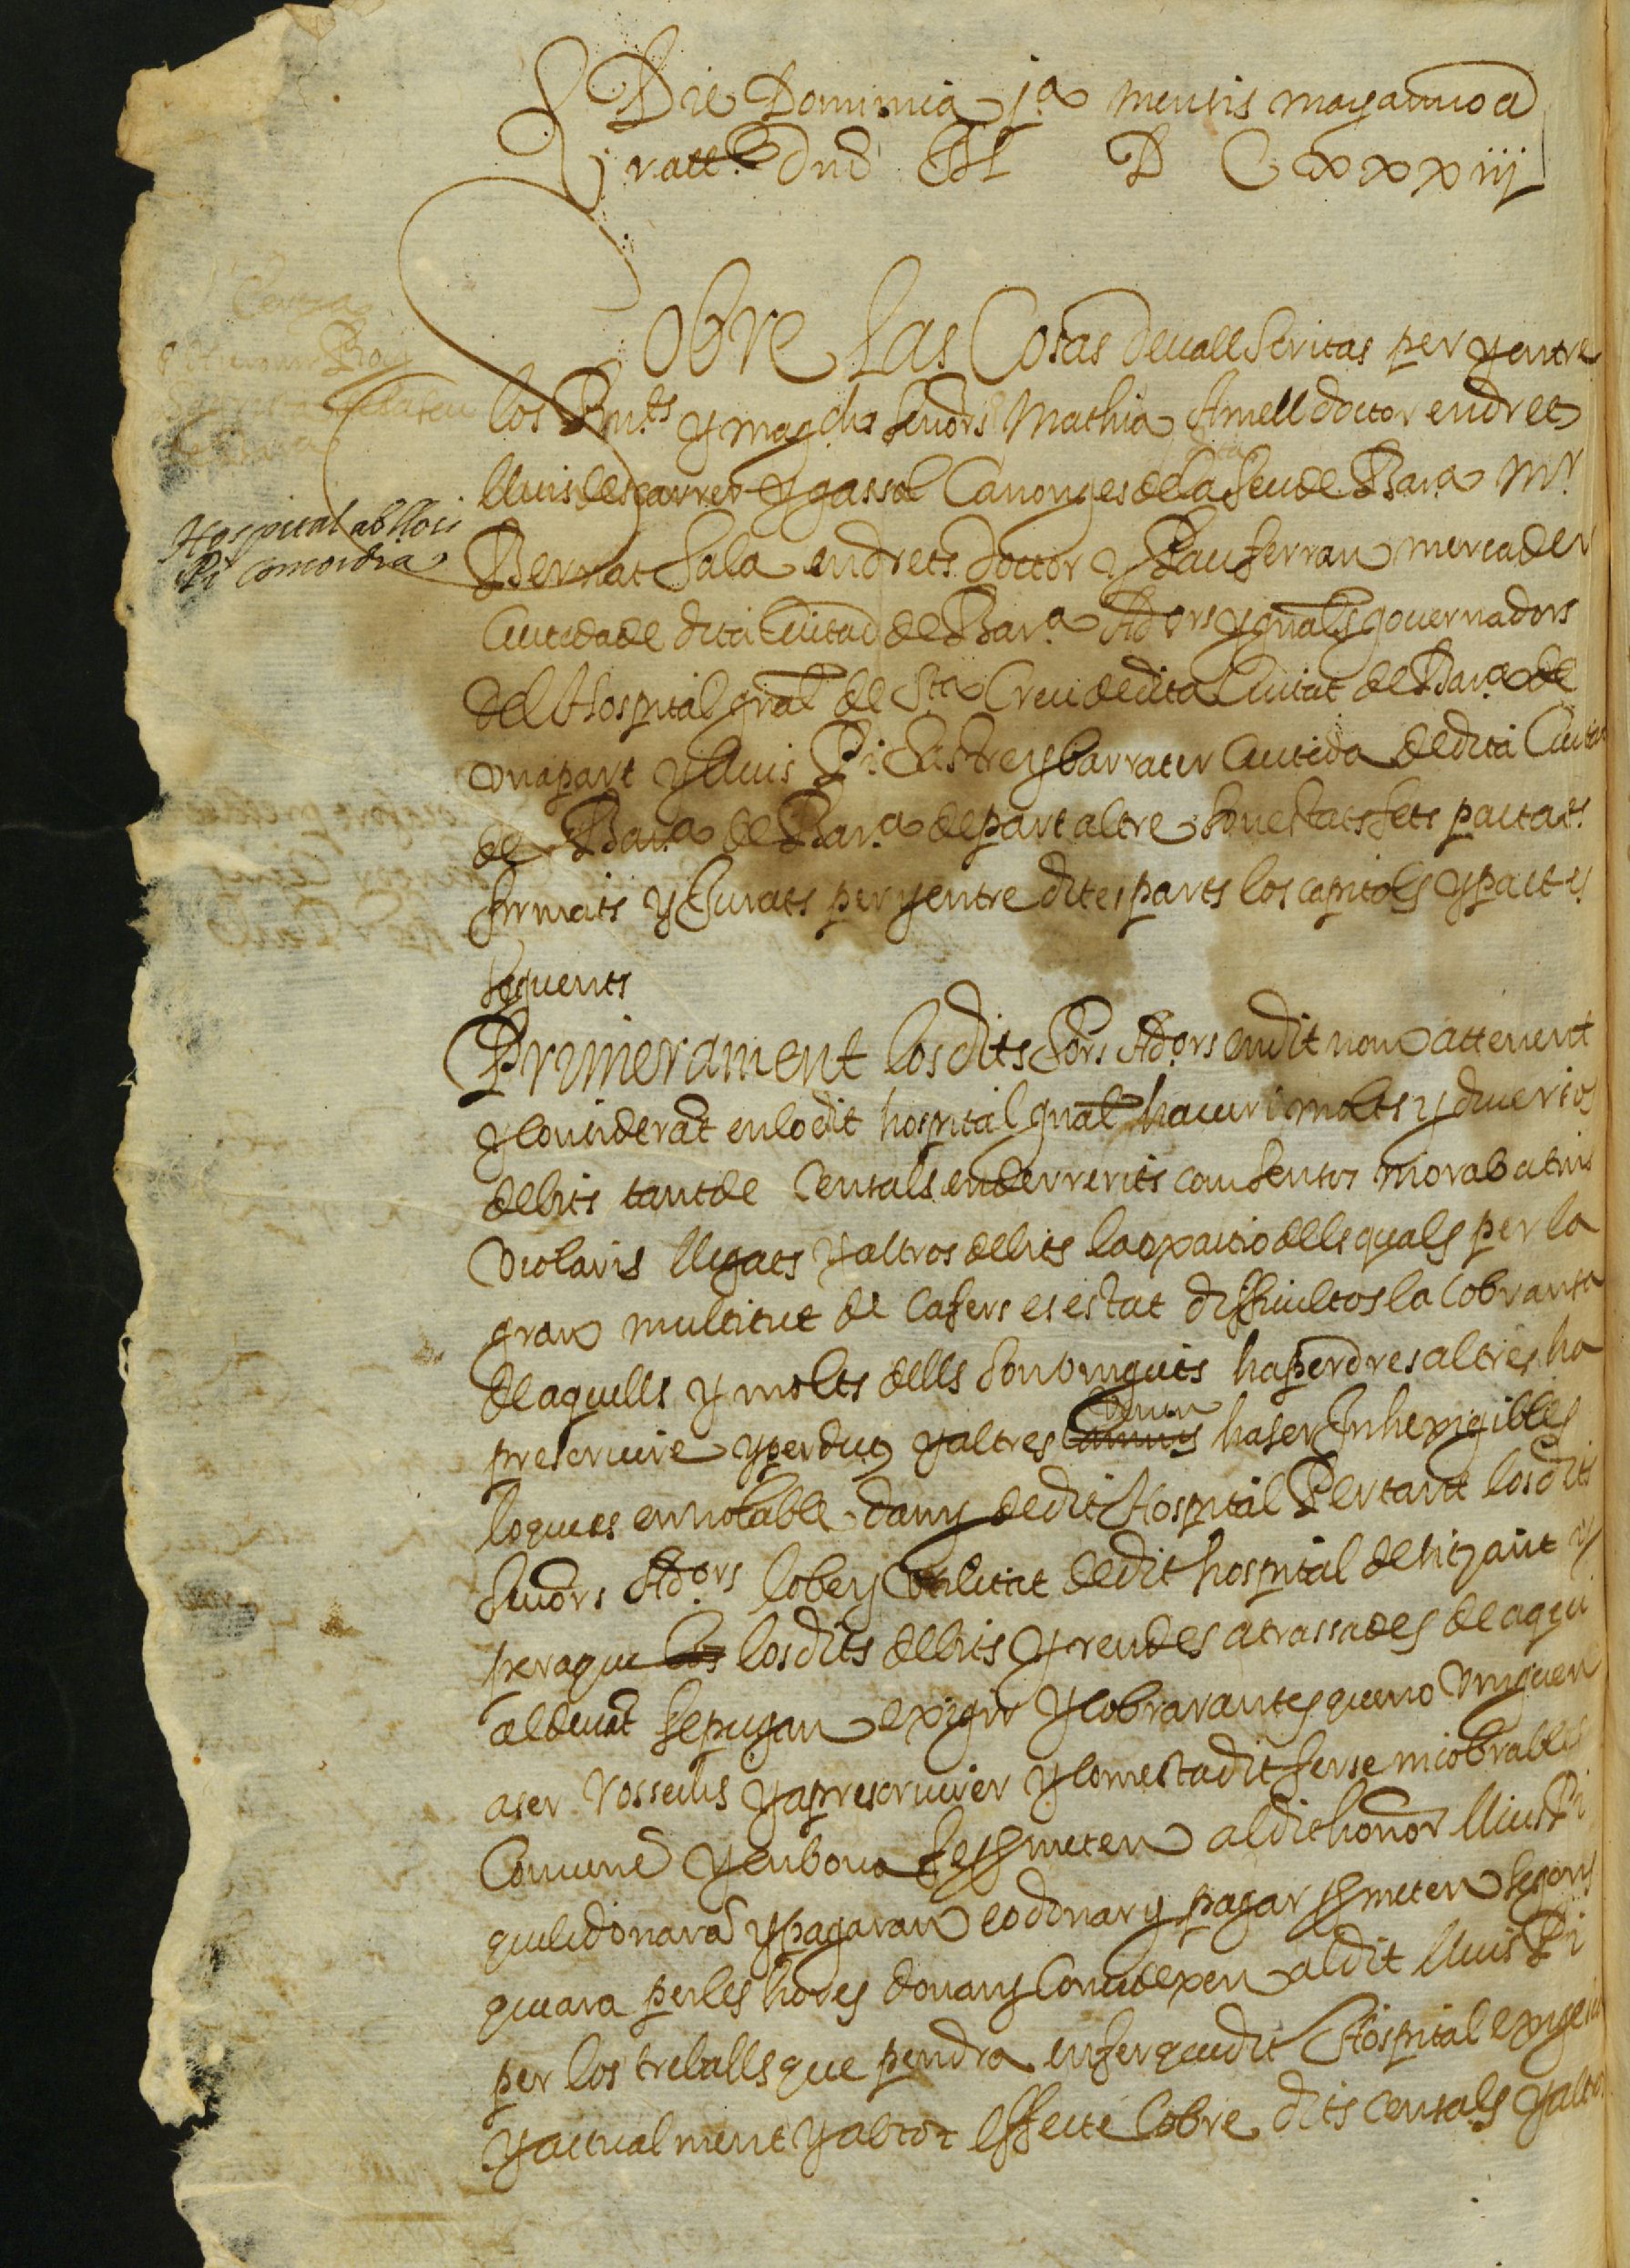 Die Dominica j.ª mensis may anno a
natt.e Dnj M D C xxxiiij
Sobre Las Cosas devall scritas per y entre
los Rnts y magchs senors Mathia Amell doctor en dret
lluis descarrer y gassol Canonges de la Seu de Bar.ª Mr.
Bernat Sala en drets doctor y Pau ferran mercader
Ciutada de dita Ciutad de Bar.ª Ad.ors y gnals governadors
del Hospital gnal de Sta Creu de dita Ciutat de Bar.ª de
una part y lluis Pi sastre y barrater Ciutada de dita Ciutat
de Bar.ª de Bar.ª de part altre son estats fets pactats
firmats y Jurats per y entre dites parts los capitols y pactes
seguents
Primerament los dits Sors Ad.ors en dit nom attenent
y considerat en lo dit hospital gnal haveri molts y diversos
debits tant de Censals enderrerits censos morabatins
violaris llegats y altros debits la exactio dels quals per la
gran multitut de cafers es estat difficultos la cobransa
de aquells y molts dells son vinguts ha perdres altres ha
prescriure y perduts y altres ha ser Inhexigibles
lo que es en notable dany de dit Hospital Per tant los dits
senors Ad.ors lo be y utilitat de dit hospital desitjant y
pera que los los dits debits y rendes atrassades de aqui
al devant se pugan exigir y cobrar antes que no vinguen
a ser y a prescriurer y com esta dit ferse incobrables
Convene y en bona fe pmeten al dit honor lluis Pi
que li donara y pagaran eo donar y pagar pmeten segons
que ara per les hores donan y concedexen al dit lluis Pi
per los treballs que pendra en fer que dit Hospital exigesca
y actualment y ab tot effecte cobre dits censals y altros
Hospital ab lluis
Pi concordia